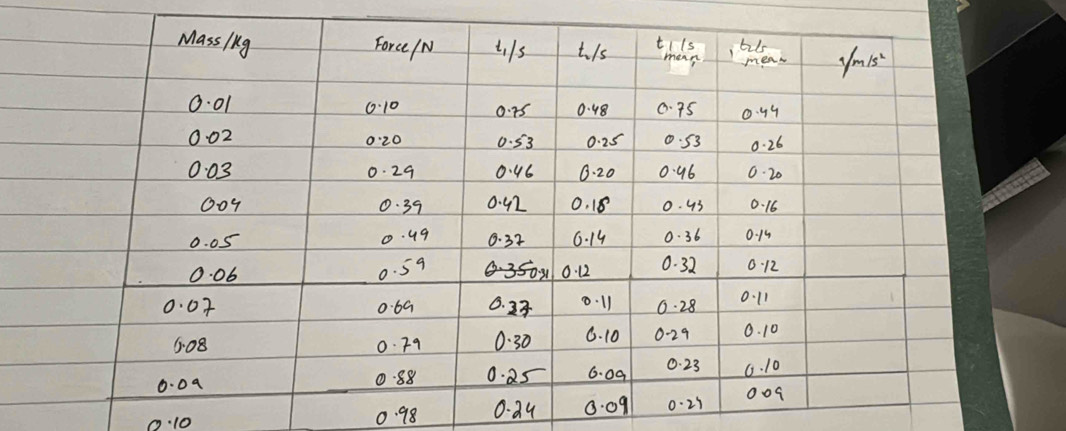 Mass/Kg Force/N t₁/s t₂/s t₁/s mean t₂/s mean /m/s²
0.01 0.10 0.75 0.48 0.75 0.44
0.02 0.20 0.53 0.25 0.53 0.26
0.03 0.29 0.46 0.20 0.46 0.20
0.04 0.39 0.42 0.18 0.43 0.16
0.05 0.49 0.37 0.14 0.36 0.14
0.06 0.59 0.35 0.31 0.12 0.32 0.12
0.07 0.69 0.37 0.11 0.28 0.11
0.08 0.79 0.30 0.10 0.29 0.10
0.09 0.88 0.25 0.09 0.23 0.10
0.10 0.98 0.24 0.09 0.24 0.09